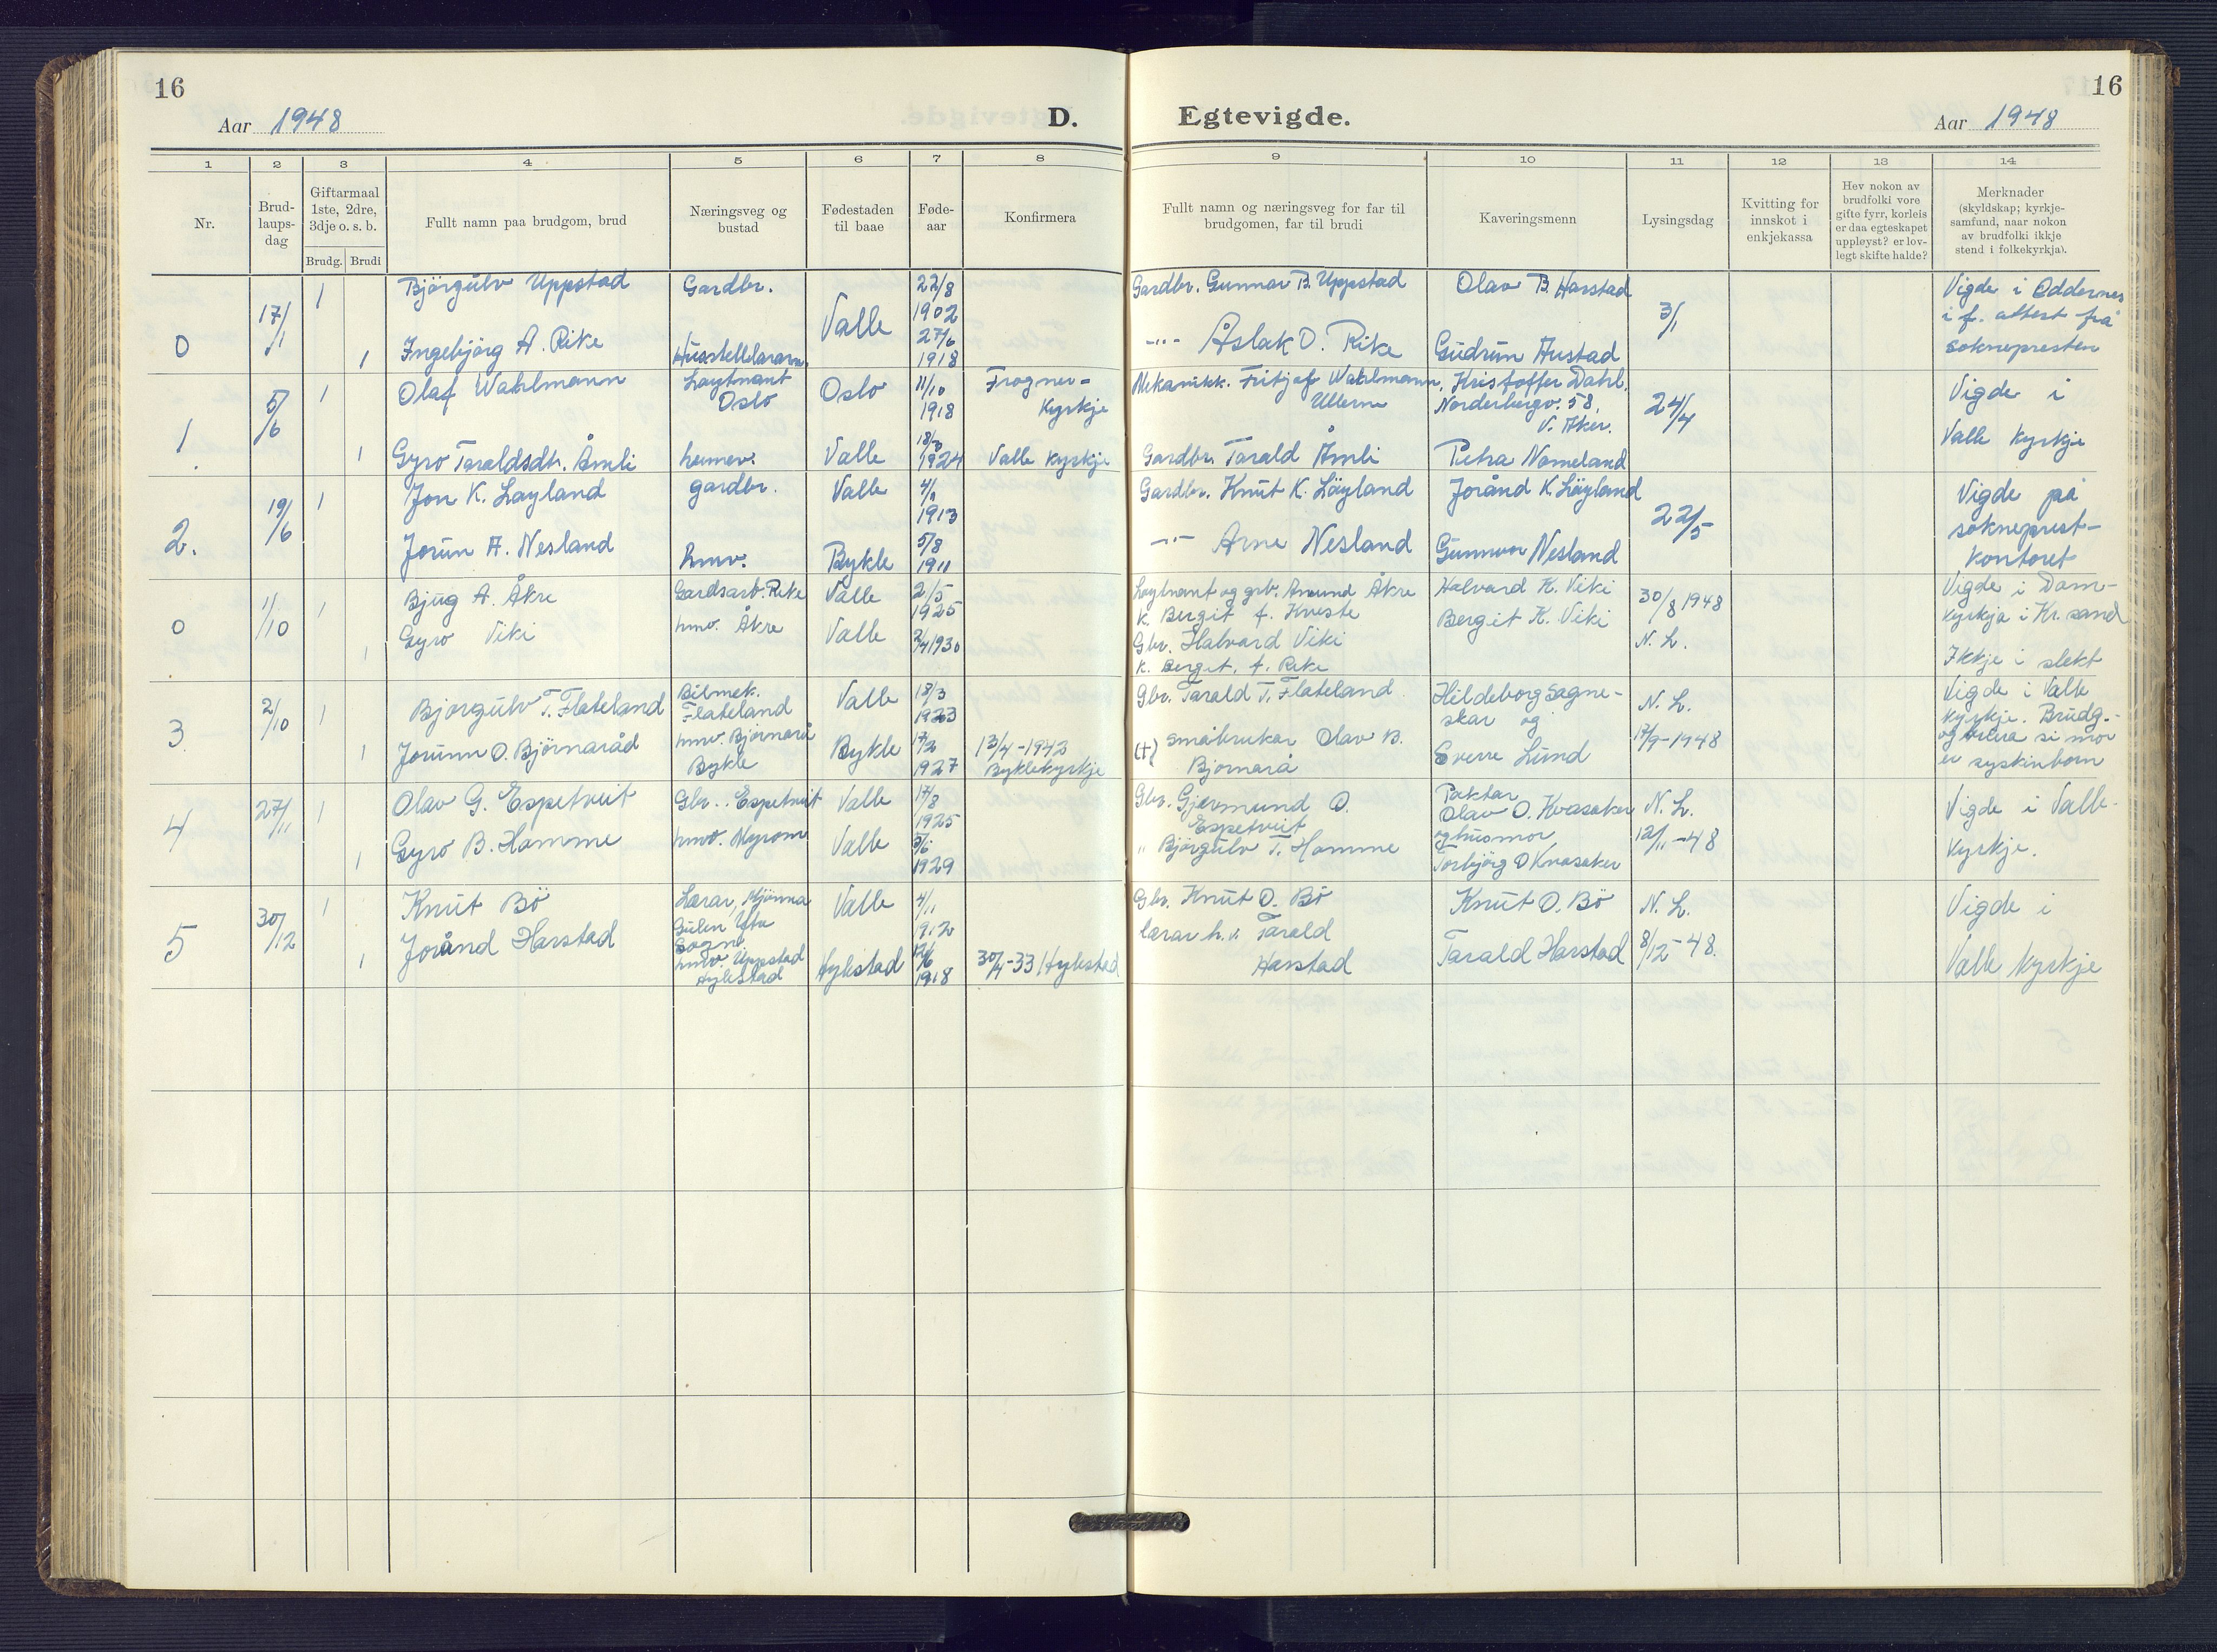 16
Aar 1948
D.
Egtevigde.
Aar 1948
16
1
2
3
4
5
6
7
8
9
10
11
12
13
14
Nr.
Brud-
laups-
dag
Giftarmaal
1ste, 2dre,
3dje o. s. b.
Brudg.
Brudi
Fullt namn paa brudgom, brud
Næringsveg og
bustad
Fødestaden
til baae
Føde-
aar
Konfirmera
Fullt namn og næringsveg for far til
brudgomen, far til brudi
Kaveringsmenn
Lysingsdag
Kvitting for
innskot i
enkjekassa
Hev nokon av
brudfolki vore
gifte fyrr, korleis
er daa egteskapet
uppløyst? er lov-
legt skifte halde?
Merknader
(skyldskap; kyrkje-
samfund, naar nokon
av brudfolki ikkje
stend i folkekyrkja).
0
17/1
1
Bjørgulv Uppstad
Gardbr.
Valle
22/8
1902
Gardbr. Gunnar B. Uppstad
Olav B. Harstad
3/1
Vigde i Oddernes
i f. attest frå
soknepresten
1
Ingebjörg A. Rike
Husstellærarin.
27/6
1918
-"- Åslak O. Rike
Gudrun Austad
1
5/6
1
Olaf Wahlmann
Løytnant
Oslo
Oslo
11/10
1918
Frogner-
Kyrkje
Mekanikk. Fritjof Wahlmann,
Ullern
Kristoffer Dahl,
Norderbergv. 58,
V. Aker.
24/4
Vigde i
Valle Kyrkje
1
Gyro Taraldsdtr. Åmli
heimev.
Valle
1924
Valle Kyrkje
Gardbr. Tarald Åmli
Petra Nomeland
2.
19/6
1
Jon K. Løyland
gardbr.
Valle
1913
Gardbr. Knut K. Löyland
Joránd K. Löyland
22/5
Vigde på
sokneprest-
kontoret
Jorun A. Nesland
hmv.
Bykle
5/8
1911
-"- Arne Nesland
Gunnvor Nesland
0
1/10
1
Bjug A. Åkre
Gardsarb. Rike
Valle
2/5
1925
Løytnant og grb. Amund Åkre
k. Bergit f. Kveste
Halvard K. Viki
30/8 1948
N. L.
Vigde i Dom-
kyrkja i Kr. sand
Ikkje i slekt
1
Gyro Viki
hmv. Åkre
Valle
2/4 1930
Gbr. Halvard Viki
k. Bergit, f. Rike
Bergit K. Viki
3
2/10
1
Bjørgulv T. Flateland
Bilmek.
Flateland
Valle
13/3
1923
Gbr. Tarald T. Flateland
Hildeborg Sagne-
skar og
N. L.
17/9-1948
Vigde i Valle
kyrkje. Brudg.-
si mor
er syskinborn
1
Jorunn O. Björnaråd
hmv. Bjørnarå
Bykle
Bykle
7/2
1927
13/4-1943
Byklekyrkje
(†) Småbrukar Olav B.
Bjørnarå
Sverre Lund
4
27/11
1
Olav G. Espetveit
Gbr. Espetveit
Valle
17/8
1925
Gbr. Gjermund O.
Espetveit
Paktar
Olav O. Kvasaker
N. L.
12/11-48
Vigde i Valle-
Kyrkje.
1
Gyro B. Homme
hmv. Myrom
Valle
1929
" Bjørgulv T. Homme
og husmor
Torbjörg O Kvasaker
5
30/12
1
Knut Bö
Lærar, Mjömna
Gulen Ytre
Sogn
Valle
4/11
1912
Gbr. Knut O. Bö
Knut O. Bö
N. L.
8/12-48.
Vigde i
Valle kyrkje
1
Joránd Harstad
hmv. Uppstad
Hylestad
Hylestad
1918
30/4-33 Hylestad
lærar h. v. Tarald
Harstad
Tarald Harstad